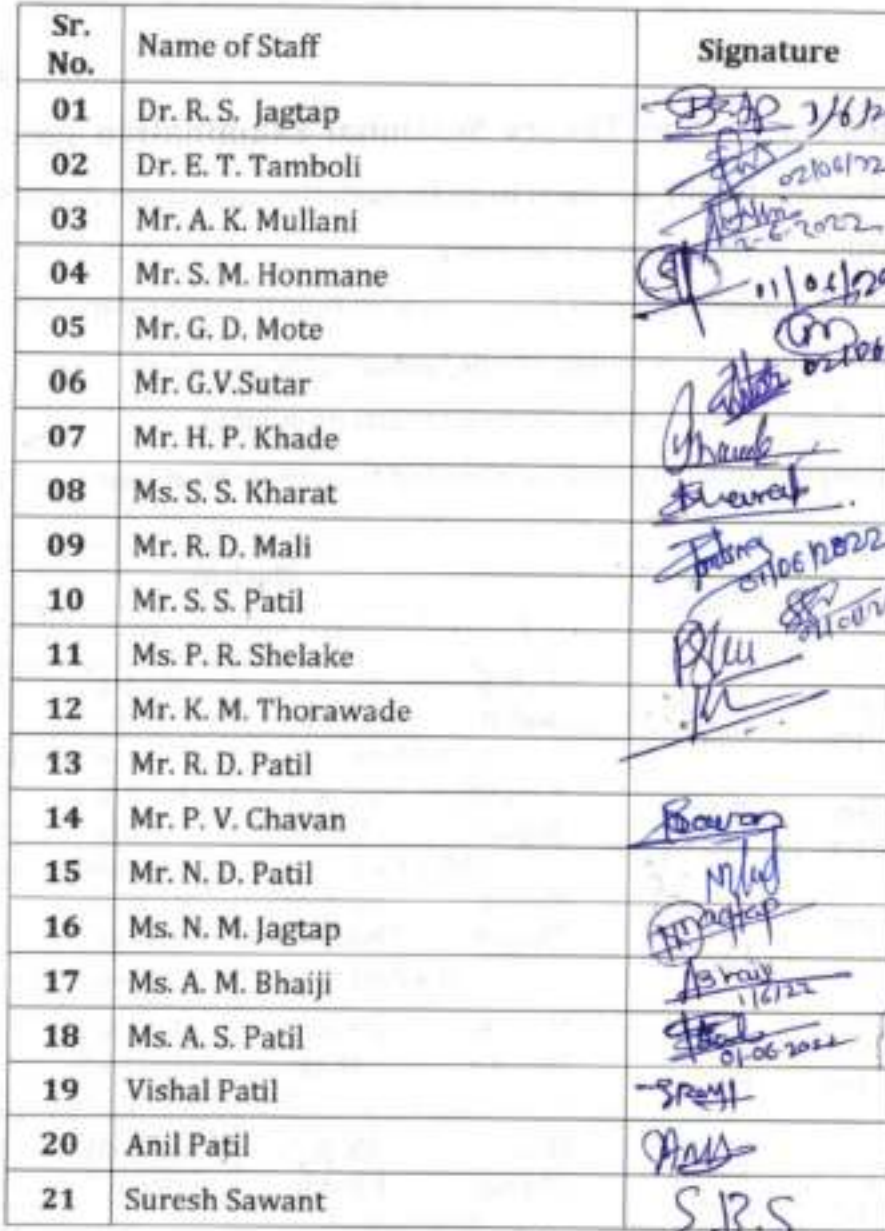 Sr. No. Name of Staff Signature
01 Dr. R. S. Jagtap
02 Dr. E. T. Tamboli 02/06/22
03 Mr. A. K. Mullani 2-6-2022
04 Mr. S. M. Honmane
05 Mr. G. D. Mote
06 Mr. G.V.Sutar
07 Mr. H. P. Khade
08 Ms. S. S. Kharat Kharat
09 Mr. R. D. Mali 01/06/2022
10 Mr. S. S. Patil
11 Ms. P. R. Shelake
12 Mr. K. M. Thorawade
13 Mr. R. D. Patil
14 Mr. P. V. Chavan
15 Mr. N. D. Patil
16 Ms. N. M. Jagtap Jagtap
17 Ms. A. M. Bhaiji 1/6/22
18 Ms. A. S. Patil 01-06-2022
19 Vishal Patil
20 Anil Patil
21 Suresh Sawant S.R.S